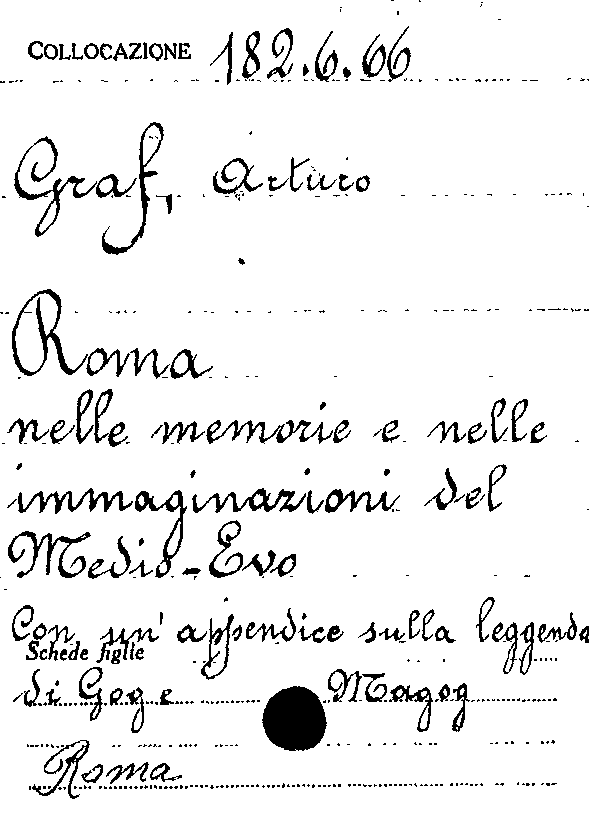 COLLOCAZIONE 182.6.66
Graf, Arturo
Roma
nelle memorie e nelle
immaginazioni del
Medio-Evo
Con un' appendice sulla leggenda
Schede figlie
di Gog e Magog
Roma